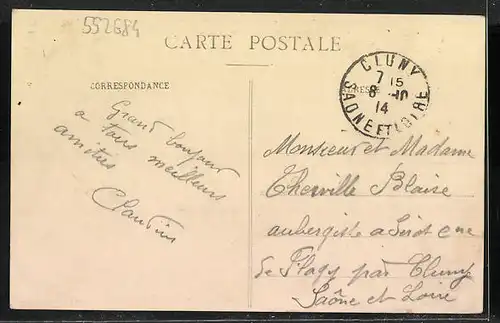 552684
CARTE POSTALE
CORRESPONDANCE
CLUNY
7 15
8 -10
14
SAONE ET LOIRE
Grand bonjour
a tous meilleurs
amitiés
Monsieur et Madame
Blaise
aubergiste a
de Flagy par Cluny
Saône et Loire